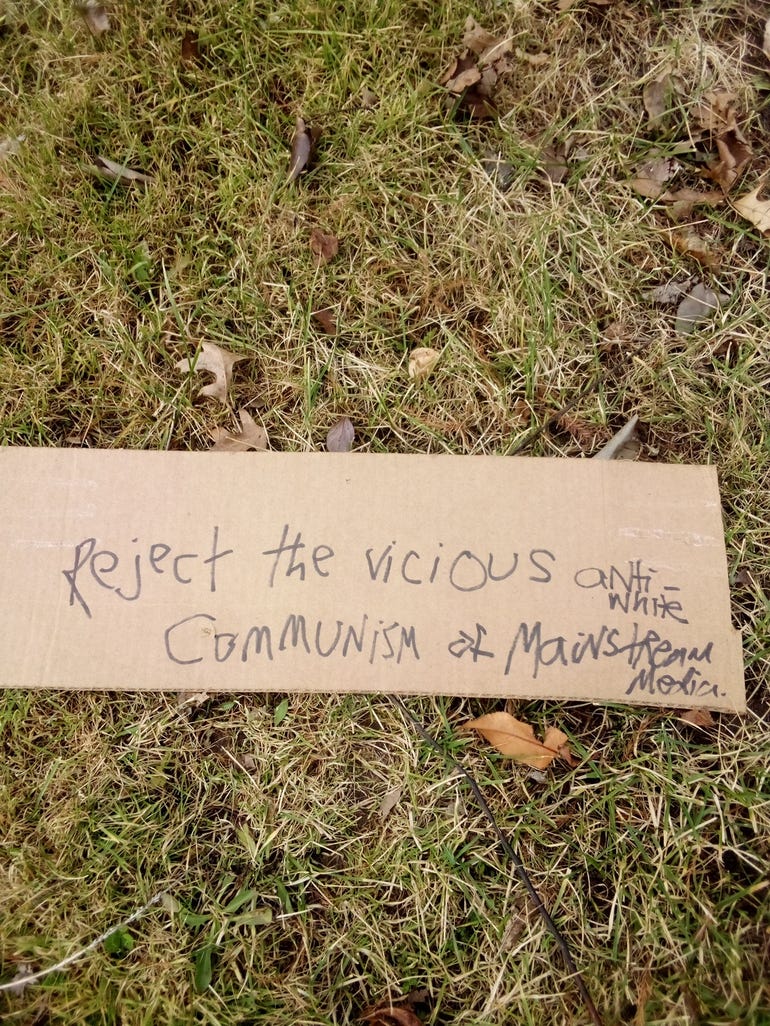 Reject the vicious anti-
white
Communism of Mainstream
Media.